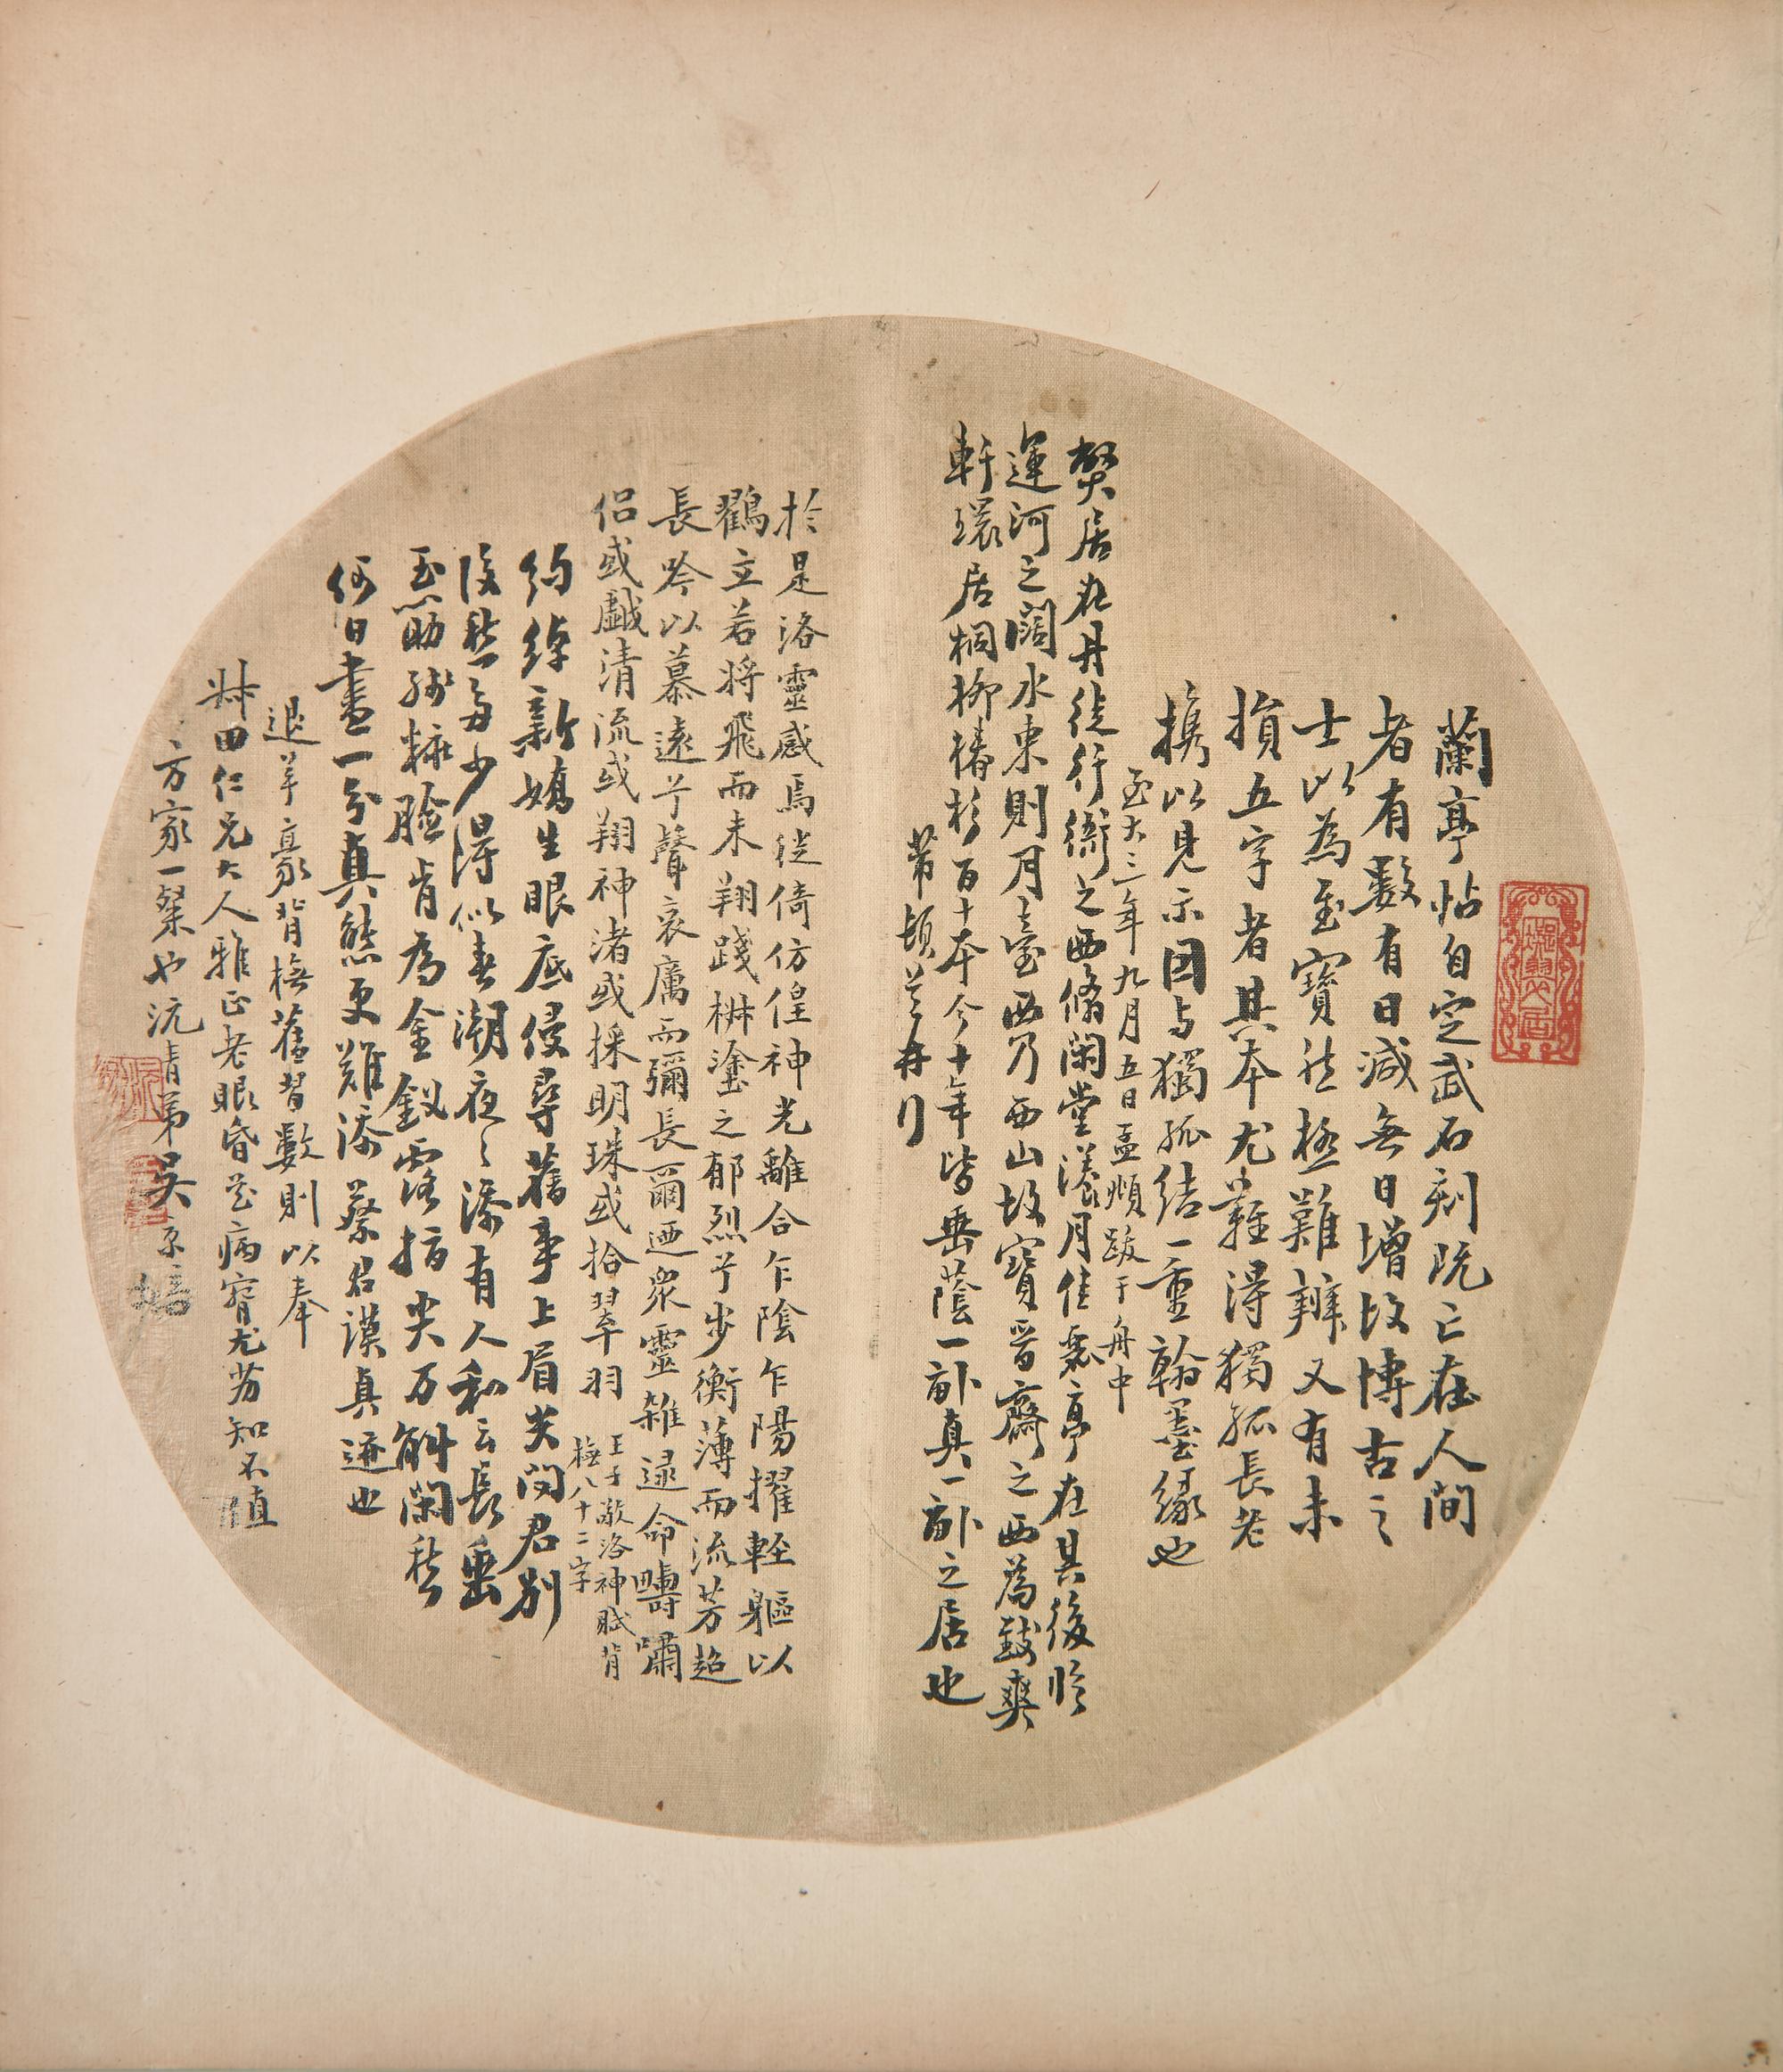 蘭亭帖自定武石刻既亡在人間
者有數有日減無日增故博古之
士以為至寶然極難辨又有未
損五字者其本尤難得獨孤長老
攜以見示因与獨孤結一重翰墨緣也
至大三年九月五日孟頫跋于舟中
弊居在丹徒行衙之西脩閑堂漾月佳麗亭在其後臨
運河之闊水東則月臺西乃西山故寶晉齋之西為致爽
軒環居桐柳椿杉百十本今十年皆垂蔭一畝真一畝之居也
芾頓首再行
於是洛靈感焉徙倚仿偟神光離合乍陰乍陽擢輕軀以
鶴立若將飛而未翔踐椒塗之郁烈兮步衡薄而流芳超
長吟以慕遠兮聲哀厲而彌長爾迺衆靈雜遝命疇嘯
侶或戲清流或翔神渚或採明珠或拾翠羽
王子敬洛神賦背
橅八十二字
約綽新嬌生眼底侵尋舊事上眉尖問君別
後愁多少得似春潮夜々添有人和云長垂
玉助殘粧臉肯為金釵露指尖万斛閑愁
何日盡一分真態更難添 蔡君謨真迹也
退羊豪背橅舊習數則以奉
叔田仁兄大人雅正老眼昏花病窘尤劣知不值
方家一粲也沅青弟吳京培